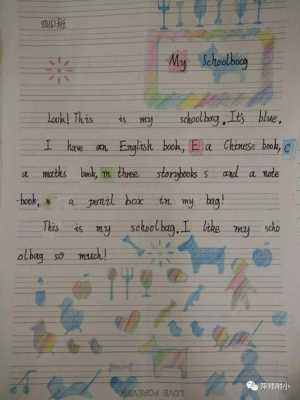 My Schoolbag
Look! This is my schoolbag. It's blue.
I have an English book, E a Chinese book, C
a maths book, m three storybooks s and a note
-book, n a pencil box in my bag!
This is my schoolbag. I like my scho
olbag so much!
LOVE FOREVER
萍师附小